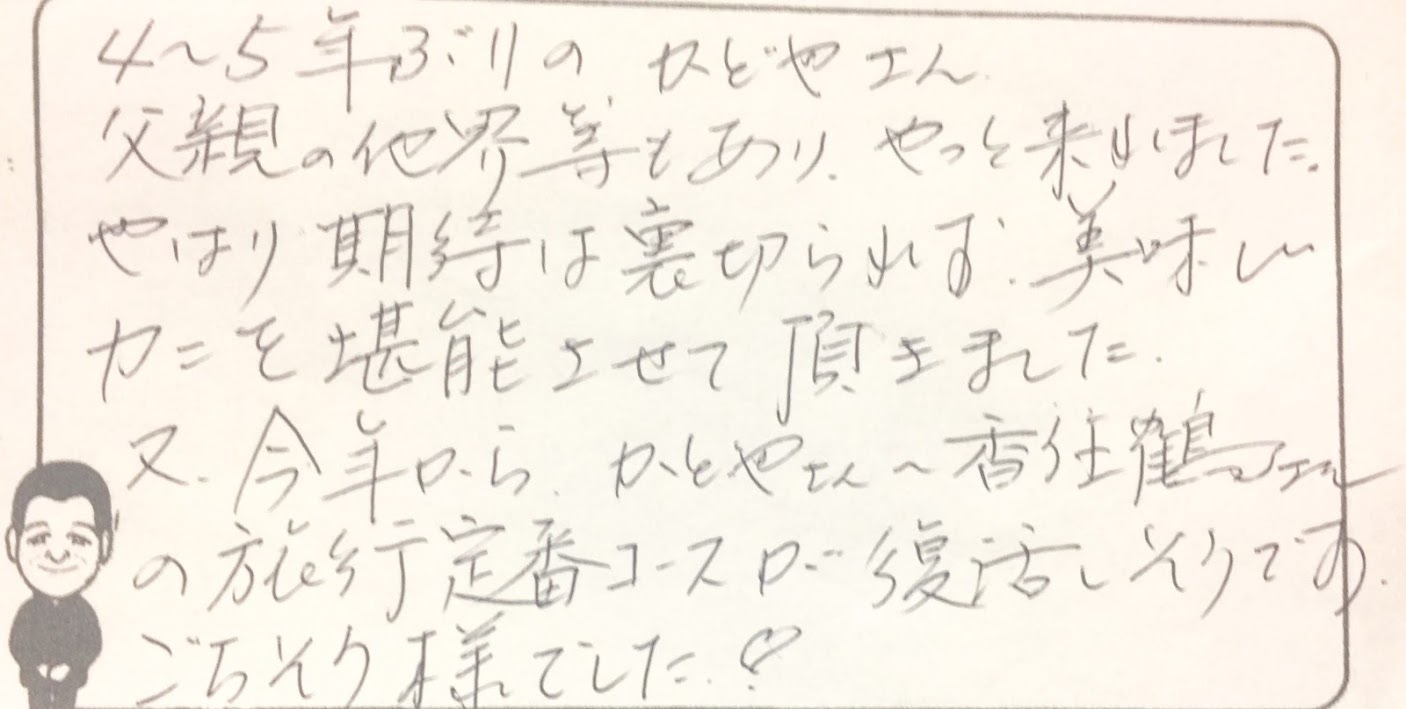 4〜5年ぶりの かどやさん.
父親の他界等もあり. やっと来れました.
やはり期待は裏切られず. 美味しい
カニを堪能させて頂きました.
又. 今年から. かどやさん〜香住鶴さん
の旅行定番コースが復活しそうです.
ごちそう様でした.♡